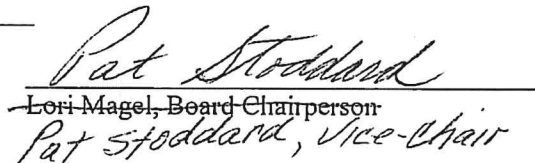 Pat Stoddard
Lori Magel, Board Chairperson
Pat Stoddard, Vice-Chair